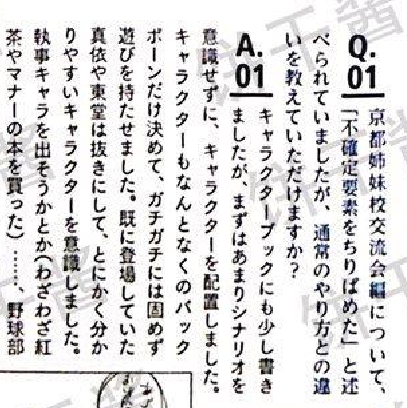 Q.
01
京都姉妹校交流会編について、
「不確定要素をちりばめた」と述
べられていましたが、通常のやり方との違
いを教えていただけますか?
A.
01
キャラクターブックにも少し書き
ましたが、まずはあまりシナリオを
意識せずに、キャラクターを配置しました。
キャラクターもなんとなくのバック
ボーンだけ決めて、ガチガチには固めず
遊びを持たせました。既に登場していた
真依や東堂は抜きにして、とにかく分か
りやすいキャラクターを意識しました。
執事キャラを出そうかとか(わざわざ紅
茶やマナーの本を買った)……、野球部